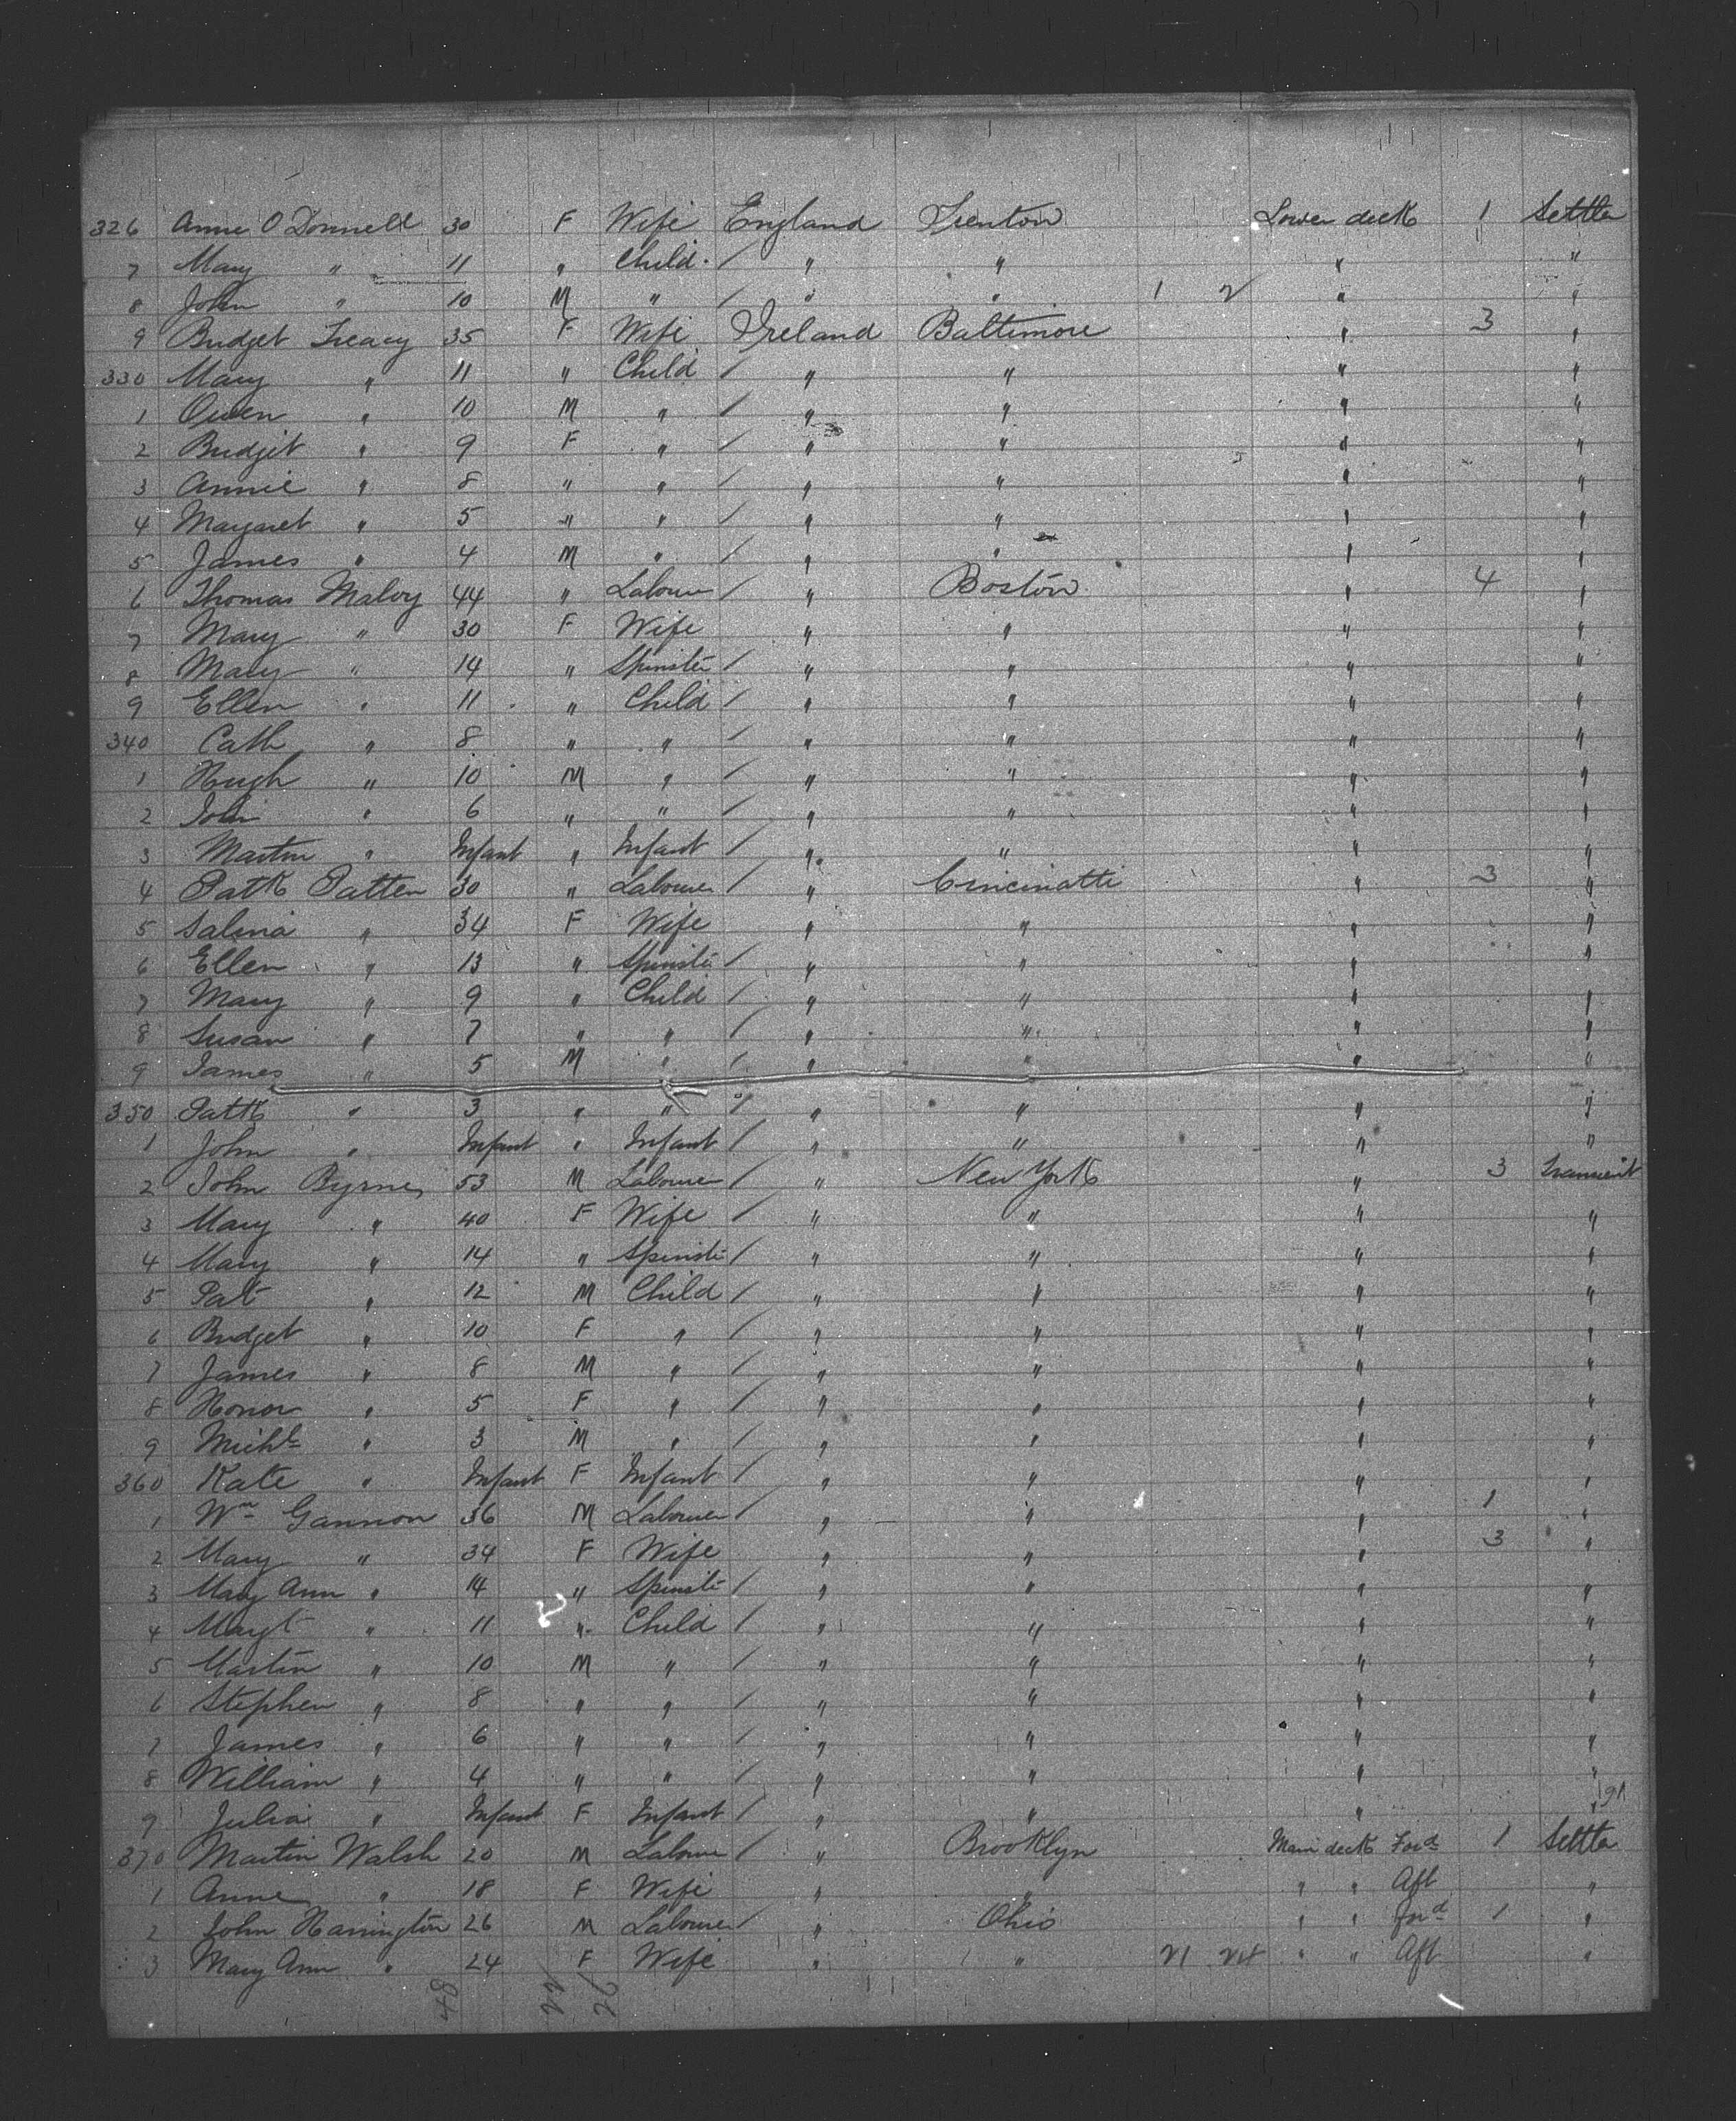 326 Anne O Donnell 30 F Wife England Trenton Lower deck 1 Settler
7 Mary " 11 " Child / " " " "
8 John " 10 M " / " " 1 2 " "
9 Bridget Treacy 35 F Wife Ireland Baltimore " 3 "
330 Mary " 11 " Child / " " " "
1 Owen " 10 M " / " " " "
2 Bridgit " 9 F " / " " " "
3 Annie " 8 " " / " " " "
4 Margaret " 5 " " / " " " "
5 James " 4 M " / " " " "
6 Thomas Malvy 44 " Labourer / " Boston " 4 "
7 Mary " 30 F Wife " " " "
8 Mary " 14 " Spinster / " " " "
9 Ellen " 11 " Child / " " " "
340 Cath " 8 " " / " " " "
1 Hugh " 10 M " / " " " "
2 John " 6 " " / " " " "
3 Martin " Infant " Infant / " " " "
4 Patk Patten 30 " Labourer / " Cincinatti " 3 "
5 Salina " 34 F Wife " " " "
6 Ellen " 13 " Spinster / " " " "
7 Mary " 9 " Child / " " " "
8 Susan " 7 " " / " " " "
9 James " 5 M " / " " " "
350 Patk " 3 " " / " " " "
1 John " Infant " Infant / " " " "
2 John Byrnes 53 M Labourer / " New York " 3 Transient
3 Mary " 40 F Wife / " " " "
4 Mary " 14 " Spinster / " " " "
5 Pat " 12 M Child / " " " "
6 Bridget " 10 F " / " " " "
7 James " 8 M " / " " " "
8 Honor " 5 F " / " " " "
9 Michl " 3 M " / " " " "
360 Kate " Infant F Infant / " " " "
1 Wm Gannon 36 M Labourer / " " " 1 "
2 Mary " 34 F Wife " " " 3 "
3 Mary Ann " 14 " Spinster / " " " "
4 Margt " 11 " Child / " " " "
5 Martin " 10 M " / " " " "
6 Stephen " 8 " " / " " " "
7 James " 6 " " / " " " "
8 William " 4 " " / " " " "
9 Julia " Infant F Infant / " " " "
370 Martin Walsh 20 M Labourer / " Brooklyn Main deck Ford 1 Settler
1 Anne " 18 F Wife " " " " Aft "
2 John Harrington 26 M Labourer / " Ohio " " Ford 1 "
3 Mary Ann " 24 F Wife " " 21 24 " " Aft "
48 22 26